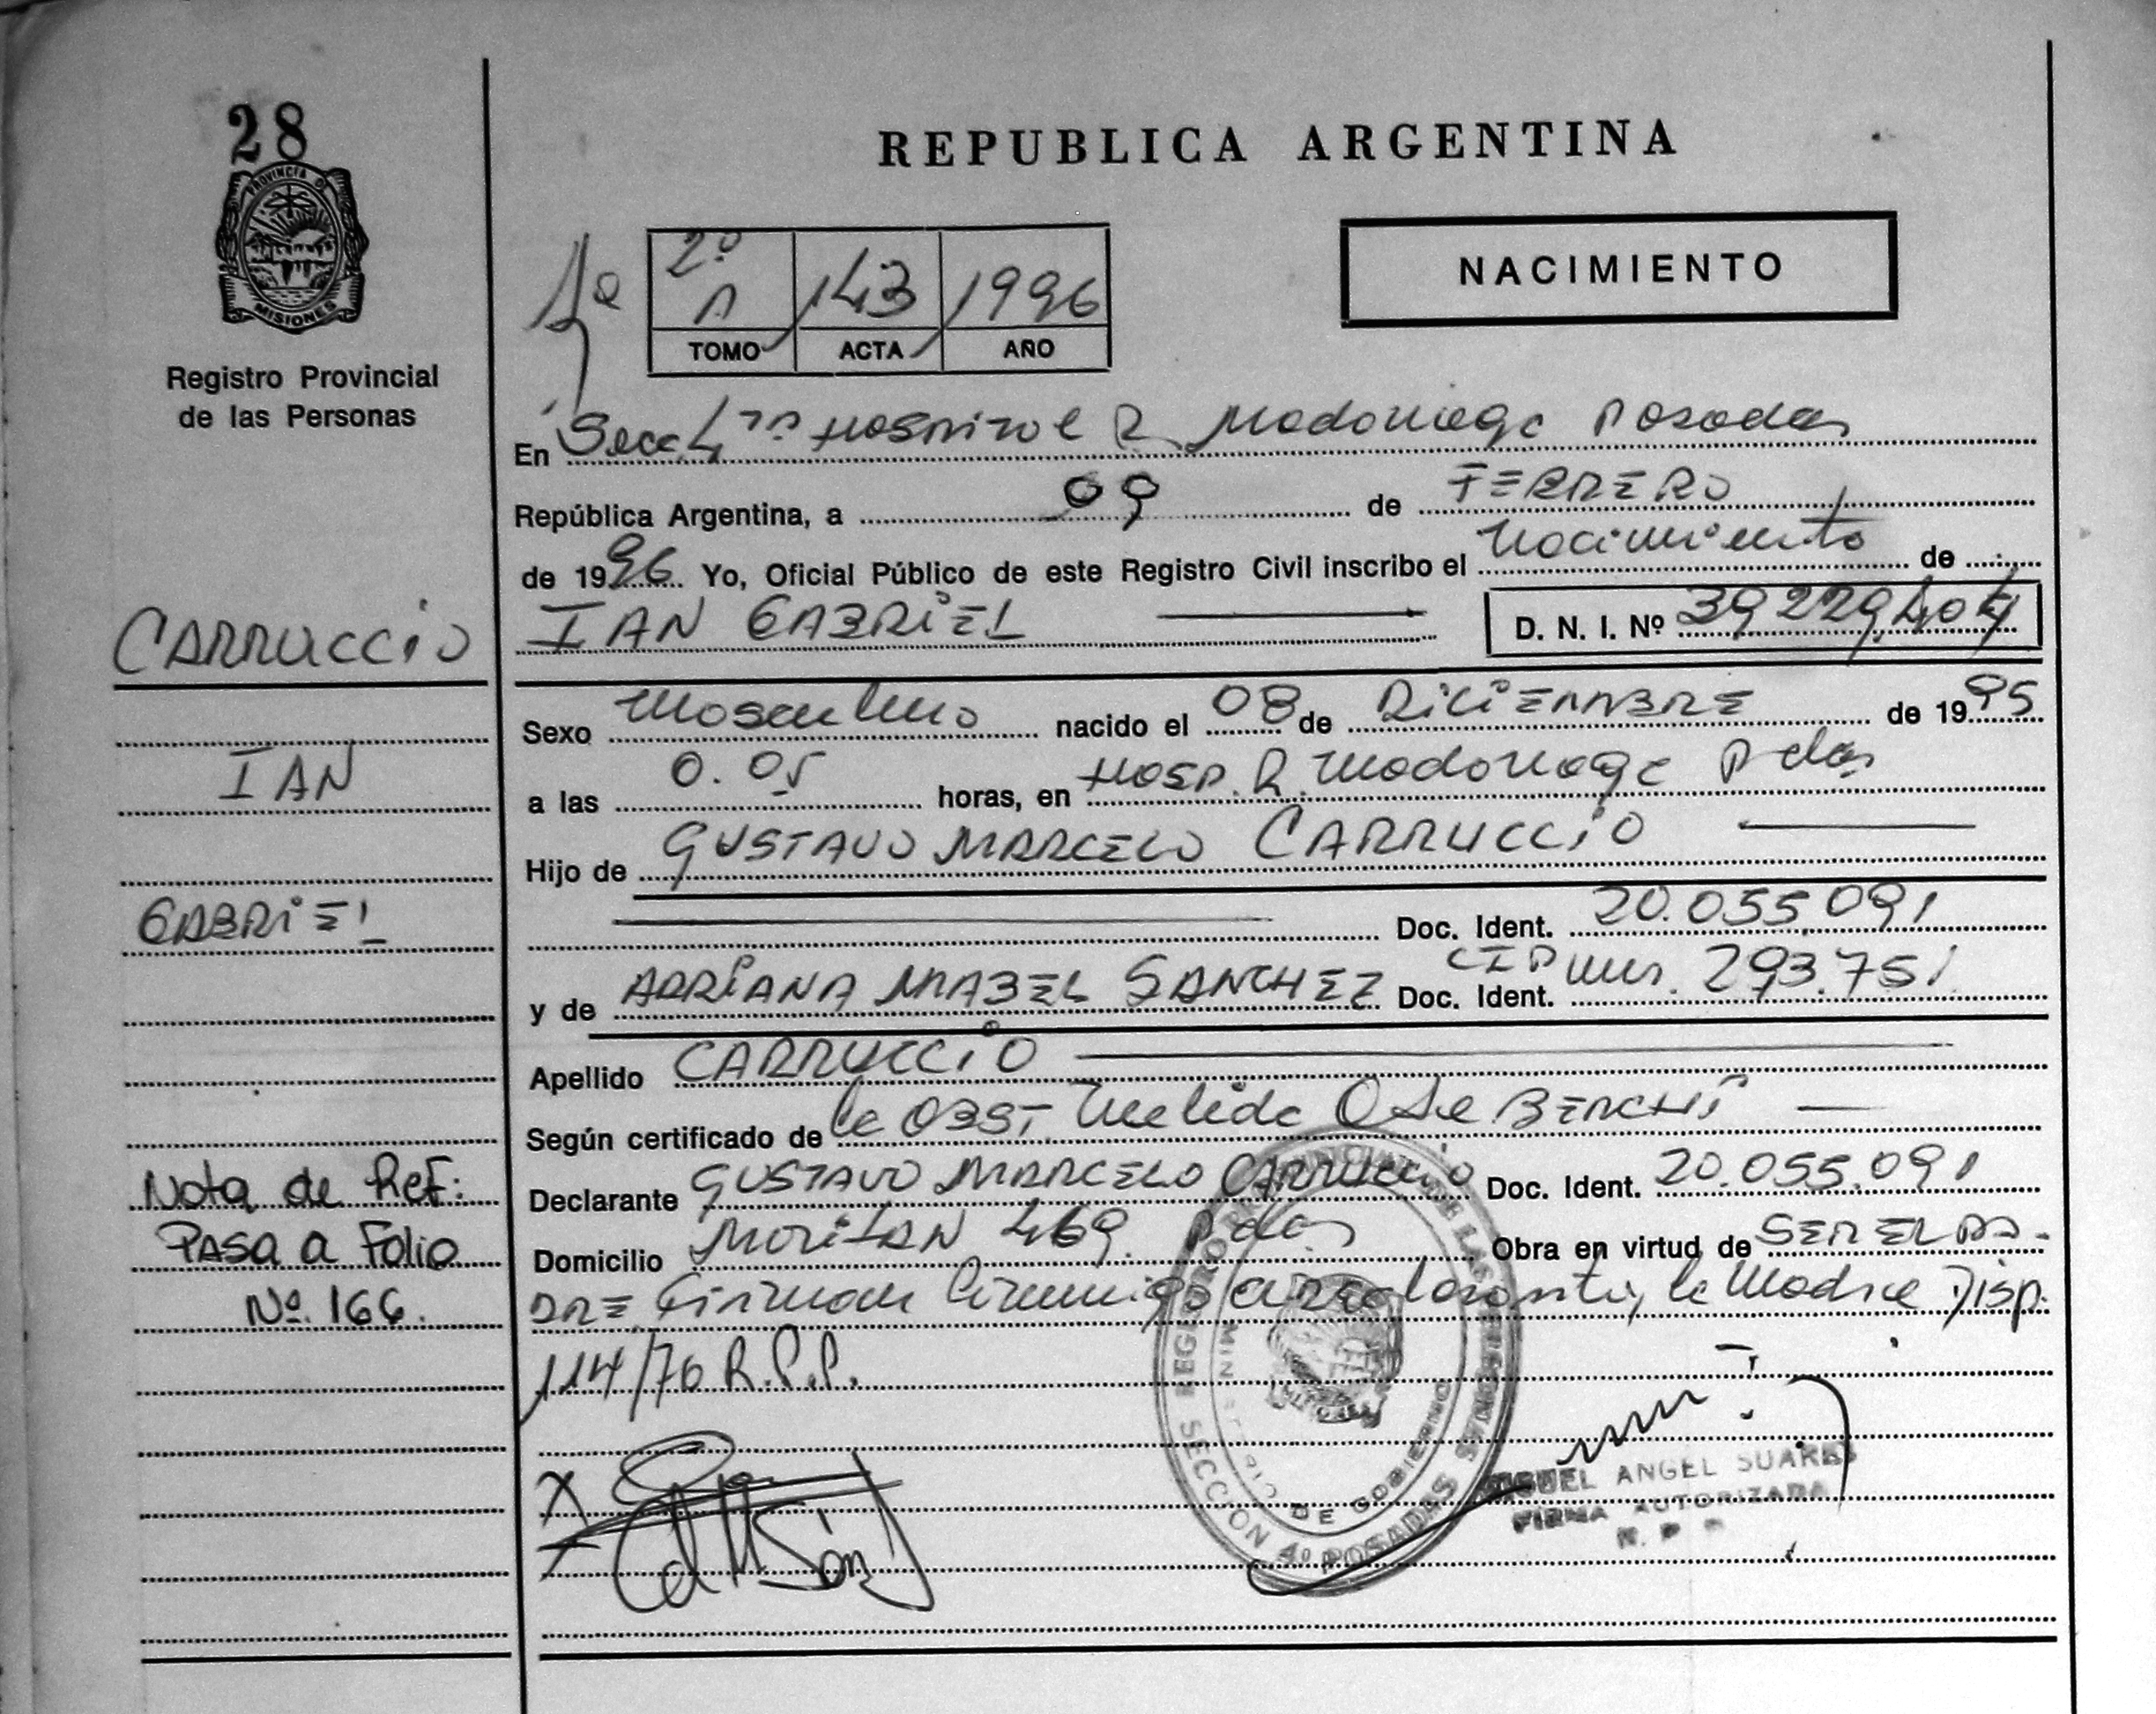 28
PROVINCIA DE
MISIONES
Registro Provincial
de las Personas
REPUBLICA ARGENTINA
NACIMIENTO
2º A 143 1996
TOMO ACTA AÑO
En Secc 4ta Hospital R Madariaga Posadas
República Argentina, a 09 de FEBRERO
de 1996 Yo, Oficial Público de este Registro Civil inscribo el Nacimiento de
CARRUCCIO
IAN GABRIEL D. N. I. Nº 39229.404
Sexo Masculino nacido el 08 de DICIEMBRE de 1995
IAN
a las 0.05 horas, en HOSP. R. Madariaga Pdas
Hijo de GUSTAVO MARCELO CARRUCCIO
GABRIEL
Doc. Ident. 20.055.091
y de ADRIANA MABEL SANCHEZ Doc. Ident. CIP 293.751
Apellido CARRUCCIO
Según certificado de la OBST. Nelida
Declarante GUSTAVO MARCELO CARRUCCIO Doc. Ident. 20.055.091
Domicilio 469 Pdas Obra en virtud de SER EL PA-
DRE Firman la Madre Disp.
114/76 R.P.P.
Nota de Ref:
Pasa a Folio
Nº. 166.
MINISTERIO DE GOBIERNO
SECCION 4º POSADAS
MIGUEL ANGEL SUAREZ
FIRMA AUTORIZADA
R. P. P.